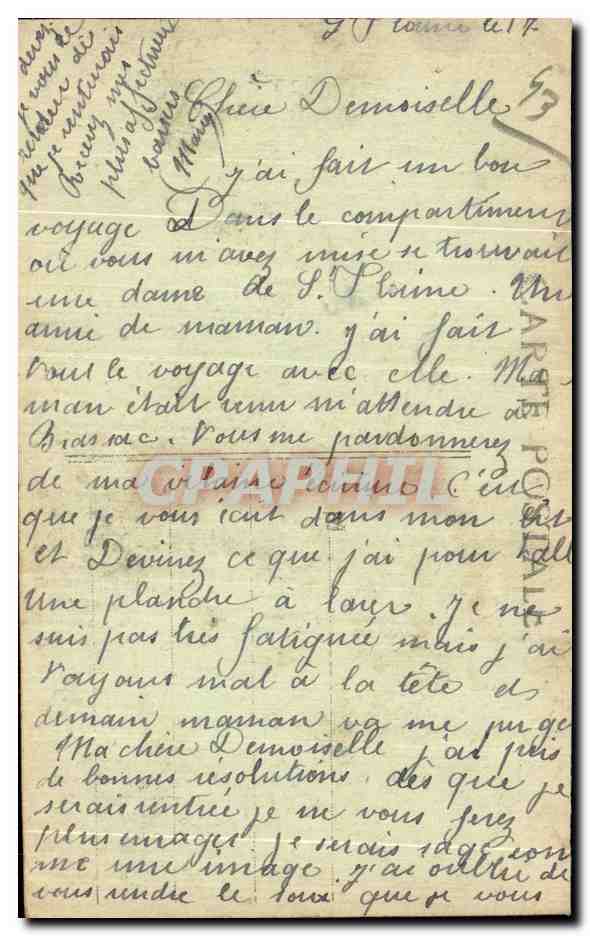 St Florine le 17
93
Chère Demoiselle
j'ai fait un bon
voyage Dans le compartiment
où vous m'avez mise se trouvait
une dame de St Florine. Une
amie de maman. j'ai fait
tout le voyage avec elle. Ma
man était venu m'attendre à
Brassac. Vous me pardonnerez
de ma vilaine écriture C'est
que je vous écrit dans mon lit
et Devinez ce que j'ai pour
Une planche à laver. Je ne
suis pas très fatiguée mais j'ai
toujours mal à la tête et
demain maman va me purge
Ma chère Demoiselle j'ai pris
de bonnes résolutions. dès que je
serais rentrée je ne vous ferez
plus enrager je serais sage com
me une image. j'ai oublié de
vous rendre le sous que je vous
devez
je vous le
que je rentrerais
Recevez mes
plus affectueux
baisers
Marie
CARTE POSTALE
CPARAMA